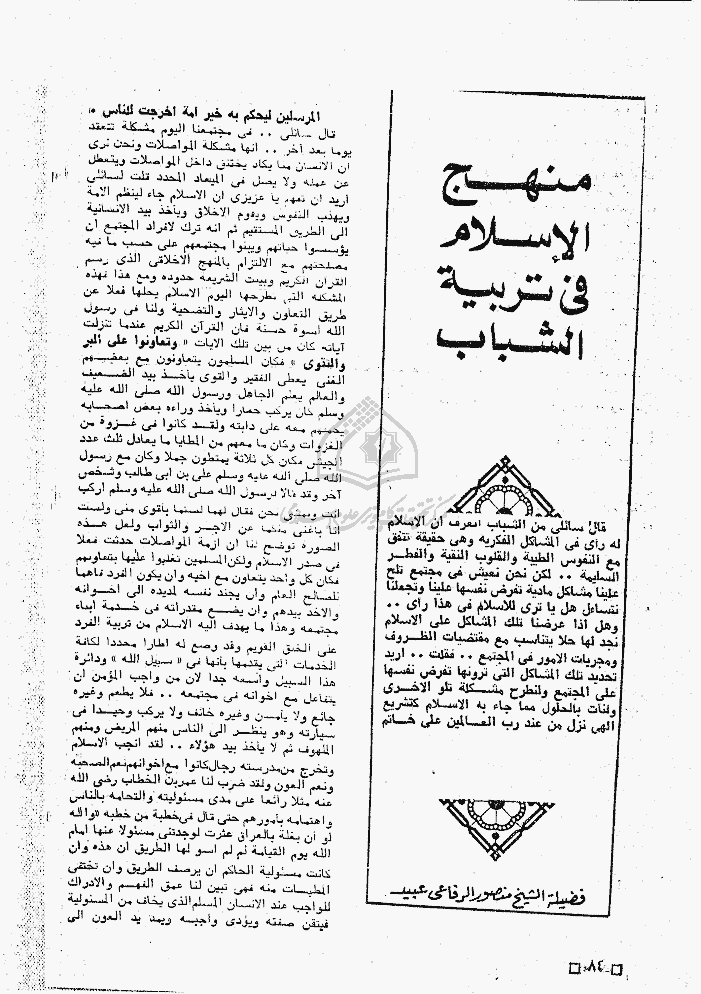 منهج
الإسلام
فى تربية
الشباب
قال سائلى من الشباب اتعرف ان الاسلام
له رأى فى المشاكل الفكرية وهى حقيقة تتفق
مع النفوس الطيبة والقلوب النقية والفطر
السليمة . . لكن نحن نعيش فى مجتمع تلح
علينا مشاكل مادية تفرض نفسها علينا وتجعلنا
نتساءل هل يا ترى للاسلام فى هذا رأى . .
وهل اذا عرضنا تلك المشاكل على الاسلام
نجد لها حلا يتناسب مع مقتضيات الظروف
ومجريات الامور فى المجتمع . . فقلت . . اريد
تحديد تلك المشاكل التى ترونها تفرض نفسها
على المجتمع ولنطرح مشكلة تلو الاخرى
ولنأت بالحلول مما جاء به الاسلام كتشريع
الهى نزل من عند رب العالمين على خاتم
فضيلة الشيخ منصور الرفاعى عبيد
المرسلين ليحكم به خير امة اخرجت للناس
قال سائلى . . فى مجتمعنا اليوم مشكلة تتعقد
يوما بعد آخر . . انها مشكلة المواصلات ونحن نرى
ان الانسان منا يكاد يختنق داخل المواصلات ويتعطل
عن عمله ولا يصل فى الميعاد المحدد قلت لسائلى
أريد ان تفهم يا عزيزى ان الاسلام جاء لينظم الامة
ويهذب النفوس ويقوم الاخلاق ويأخذ بيد الانسانية
الى الطريق المستقيم ثم انه ترك لافراد المجتمع أن
يؤسسوا حياتهم ويبنوا مجتمعهم على حسب ما فيه
مصلحتهم مع الالتزام بالمنهج الاخلاقى الذى رسم
القرآن الكريم وبينت الشريعة حدوده ومع هذا فهذه
المشكلة التى يطرحها اليوم الاسلام يحلها فعلا عن
طريق التعاون والايثار والتضحية ولنا فى رسول
الله أسوة حسنة فان القرآن الكريم عندما نزلت
آياته كان من بين تلك الايات « وتعاونوا على البر
والتقوى » فكان المسلمون يتعاونون مع بعضهم
الغنى يعطى الفقير والقوى يأخذ بيد الضعيف
والعالم يعلم الجاهل ورسول الله صلى الله عليه
وسلم كان يركب حمارا ويأخذ وراءه بعض اصحابه
يحملهم معه على دابته ولقد كانوا فى غزوة من
الغزوات وكان ما معهم من المطايا ما يعادل ثلث عدد
الجيش فكان كل ثلاثة يمتطون جملا وكان مع رسول
الله صلى الله عليه وسلم على بن ابى طالب وشخص
آخر وقد قالا لرسول الله صلى الله عليه وسلم اركب
انت ونمشى نحن فقال لهما لستما بأقوى منى ولست
أنا بأغنى منكما عن الاجر والثواب ولعل هذه
الصورة توضح لنا ان ازمة المواصلات حدثت فعلا
فى صدر الاسلام ولكن المسلمين تغلبوا عليها بتعاونهم
فكان كل واحد يتعاون مع اخيه وان يكون الفرد فاهما
للصالح العام وان يجند نفسه لمد يده الى اخوانه
والاخذ بيدهم وان يضع مقدراته فى خدمة أبناء
مجتمعه وهذا ما يهدف اليه الاسلام من تربية الفرد
على الخلق القويم وقد وضع له اطارا محددا لكافة
الخدمات التى يقدمها بأنها فى « سبيل الله » ودائرة
هذا السبيل واسعة جدا لان من واجب المؤمن ان
يتفاعل مع اخوانه فى مجتمعه . . فلا يطعم وغيره
جائع ولا يأمن وغيره خائف ولا يركب وحيدا فى
سيارته وهو ينظر الى الناس منهم المريض ومنهم
الملهوف ثم لا يأخذ بيد هؤلاء . . لقد انجب الاسلام
وتخرج من مدرسته رجال كانوا مع اخوانهم نعم الصحبة
ونعم العون ولقد ضرب لنا عمر بن الخطاب رضى الله
عنه مثلا رائعا على مدى مسئوليته والتحامه بالناس
واهتمامه بأمورهم حتى قال فى خطبة من خطبه «والله
لو أن بغلة بالعراق عثرت لوجدتنى مسئولا عنها امام
الله يوم القيامة لم لم اسو لها الطريق ان هذه وان
كانت مسئولية الحاكم ان يرصف الطريق وان تختفى
المطبات منه فهى تبين لنا عمق الفهم والادراك
للواجب عند الانسان المسلم الذى يخاف من المسئولية
فيتقن صنعته ويؤدى واجبه ويمد يد العون الى
٨٤